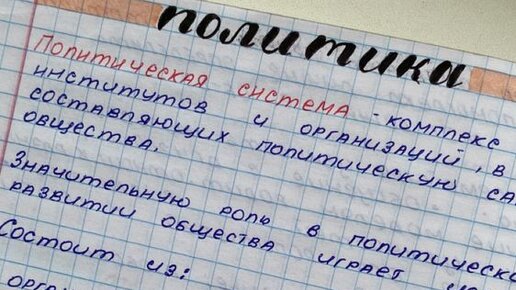 ПОЛИТИКА
Политическая система - комплекс
институтов и организаций, в
составляющих политическую са
общества.
Значительную роль в политическо
развитии общества играет
Состоит из:
орга